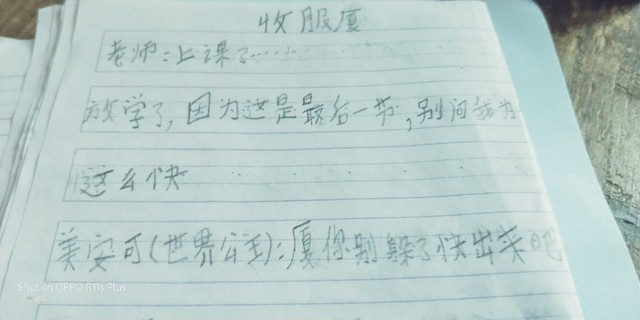 收服厦
老师:上课了……
放学了,因为这是最后一节,别问我为
这么快
美安可(世界公主):厦你别躲了快出来吧
Shot on OPPO R11s Plus